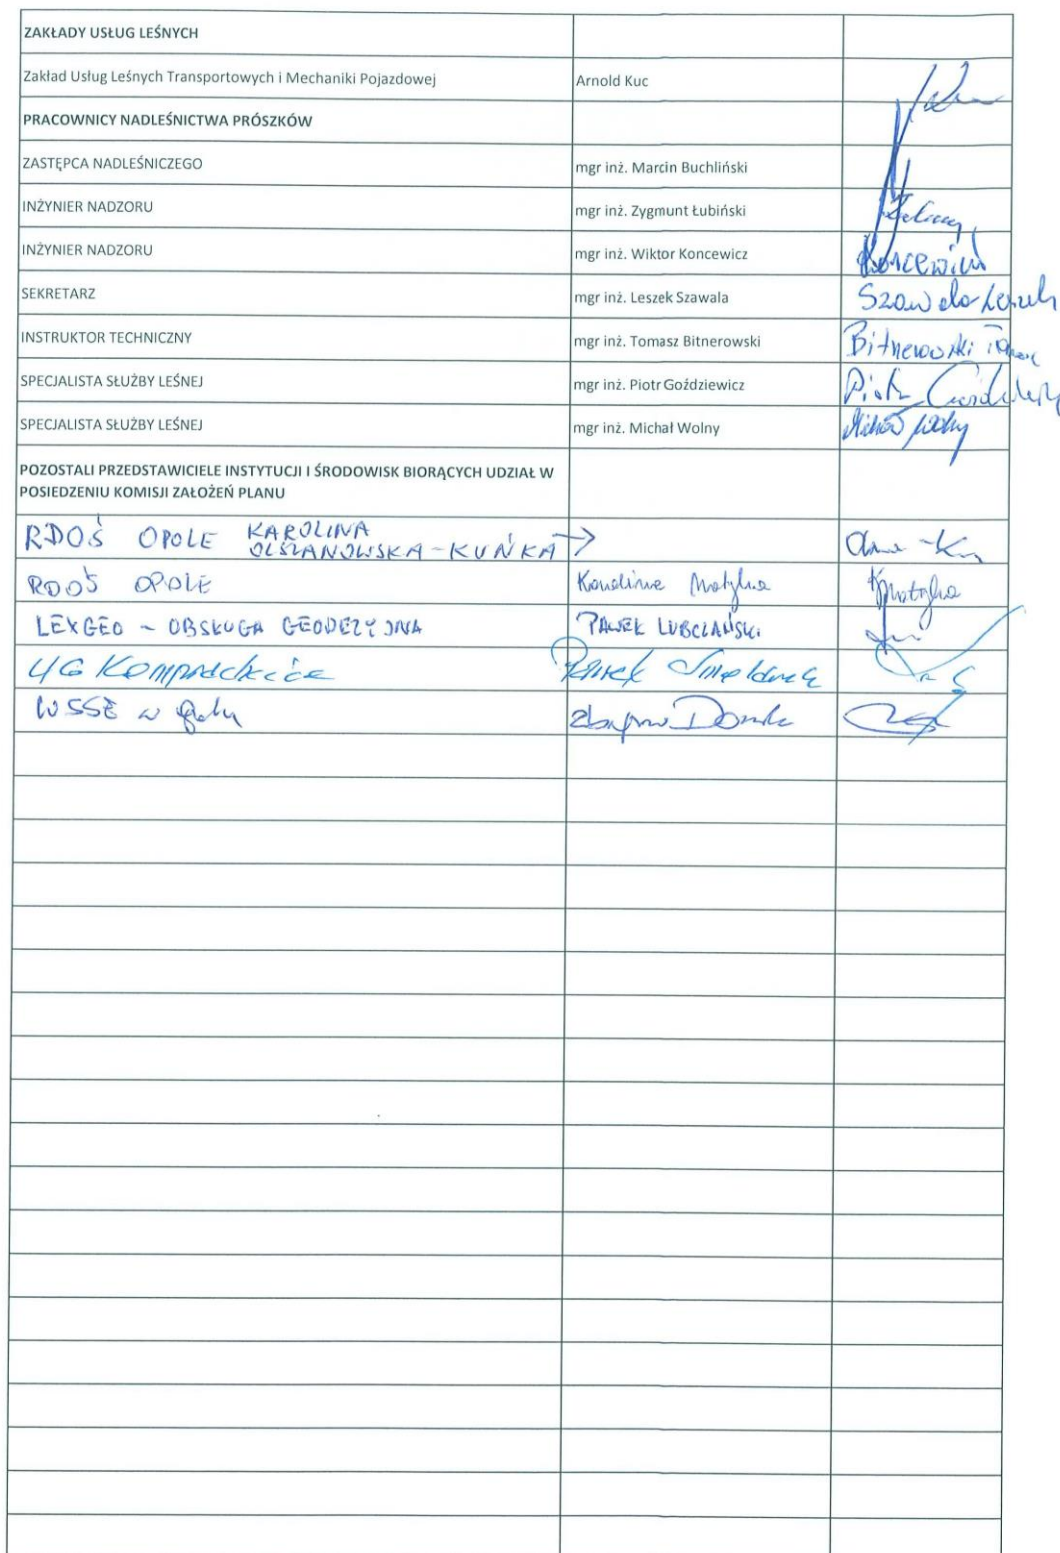 ZAKŁADY USŁUG LEŚNYCH
Zakład Usług Leśnych Transportowych i Mechaniki Pojazdowej Arnold Kuc
PRACOWNICY NADLEŚNICTWA PRÓSZKÓW
ZASTĘPCA NADLEŚNICZEGO mgr inż. Marcin Buchliński
INŻYNIER NADZORU mgr inż. Zygmunt Łubiński
INŻYNIER NADZORU mgr inż. Wiktor Koncewicz Koncewicz
SEKRETARZ mgr inż. Leszek Szawala Szawala Leszek
INSTRUKTOR TECHNICZNY mgr inż. Tomasz Bitnerowski Bitnerowski Tomasz
SPECJALISTA SŁUŻBY LEŚNEJ mgr inż. Piotr Goździewicz Piotr Goździewicz
SPECJALISTA SŁUŻBY LEŚNEJ mgr inż. Michał Wolny Michał Wolny
POZOSTALI PRZEDSTAWICIELE INSTYTUCJI I ŚRODOWISK BIORĄCYCH UDZIAŁ W
POSIEDZENIU KOMISJI ZAŁOŻEŃ PLANU
RDOŚ OPOLE KAROLINA
OLSZANOWSKA-KUŃKA →
RDOŚ OPOLE Matylna KMatylna
LEXGEO - OBSŁUGA GEODEZYJNA PAWEŁ LUBCZAŃSKI
UG Komprachcice Paweł
WSSE w